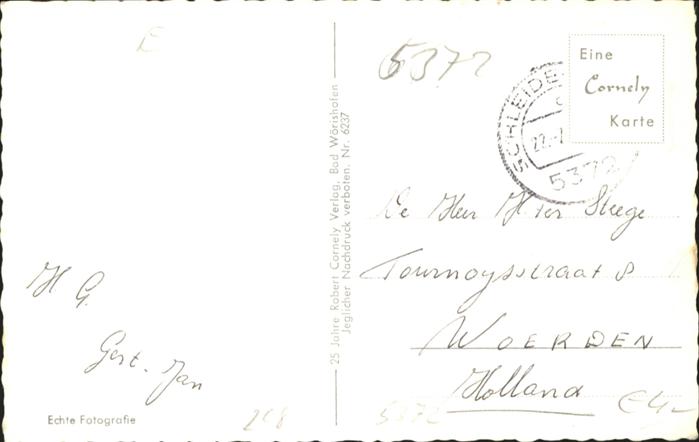 E
5372
Eine
Cornely
Karte
SCHLEIDE
22.-7
5372
25 Jahre Robert Cornely Verlag, Bad Wörishofen
Jeglicher Nachdruck verboten. Nr. 6237
De Heer H ter Steege
Tournoysstraat 8
WOERDEN
Holland
H G.
Gert. Jan
Echte Fotografie
5372